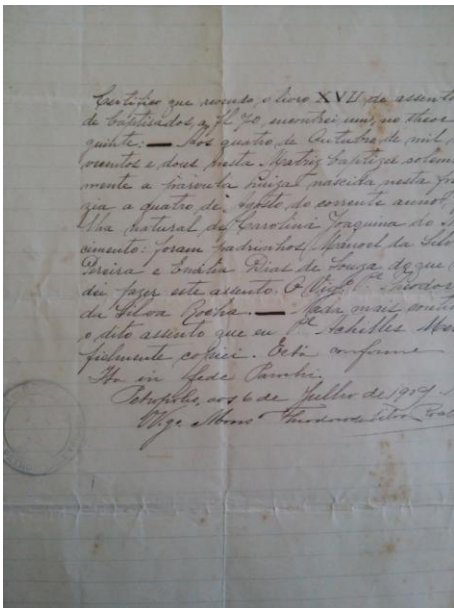 Certifico que revendo o livro XVII de assento
de baptisados, a fl. 70, encontrei um, no theor
guinte: — Aos quatro de Outubro de mil
vecentos e dous nesta Matriz baptizei solem
mente a parvula Luiza nascida nesta fre
zia a quatro de Agosto do corrente anno, fi
lha natural de Carolina Joaquina do
cimento: foram padrinhos Manoel da Silv
Pereira e Emilia Dias de Souza, de que
dei fazer este assento. O Vigº Pe Theodor
da Silva Rocha. — Nada mais conti
o dito assento que eu Pe Achilles Me
fielmente copiei. Está conforme
Ita in fide Parochi
Petropolis, aos 6 de Julho de 1909
Theodoro da Silva